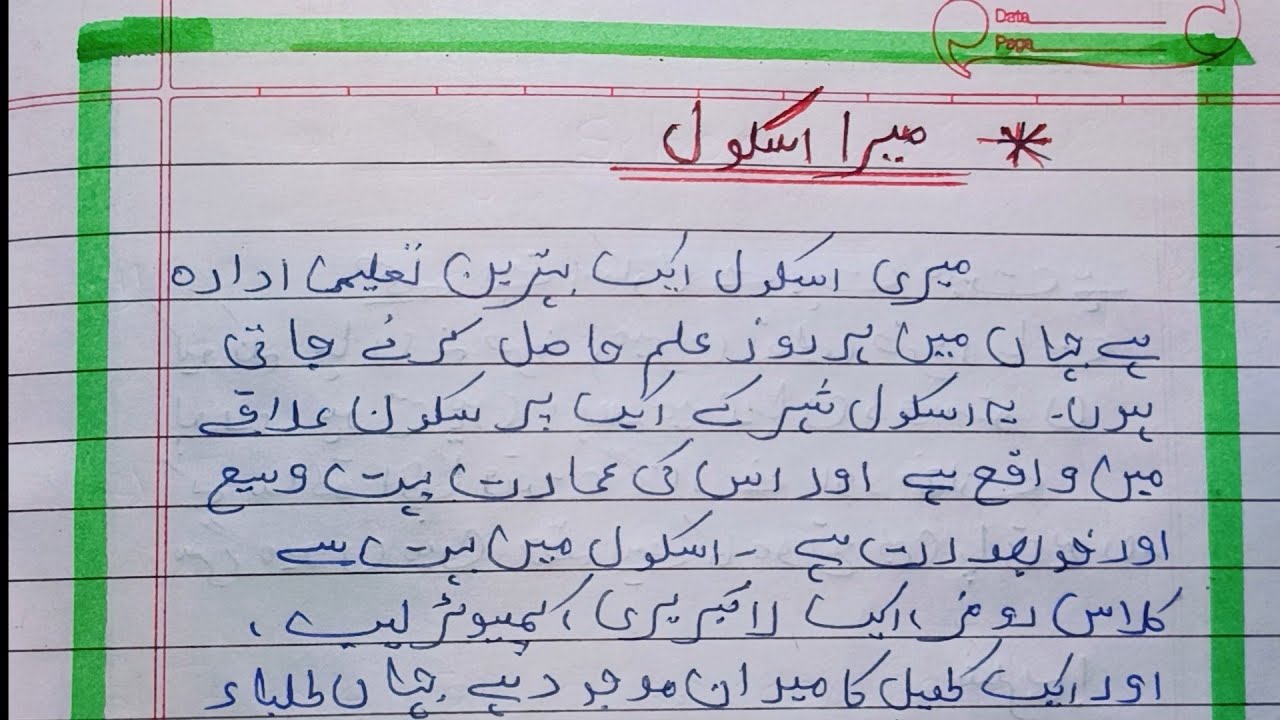 Data
Page
* میرا اسکول
میری اسکول ایک بہترین تعلیمی ادارہ
ہے جہاں میں ہر روز علم حاصل کرنے جاتی
ہوں۔ یہ اسکول شہر کے ایک پر سکون علاقے
میں واقع ہے اور اس کی عمارت بہت وسیع
اور خوبصورت ہے ۔ اسکول میں بہت سے
کلاس رومز، ایک لائبریری، کمپیوٹر لیب،
اور ایک کھیل کا میدان موجود ہے جہاں طلباء